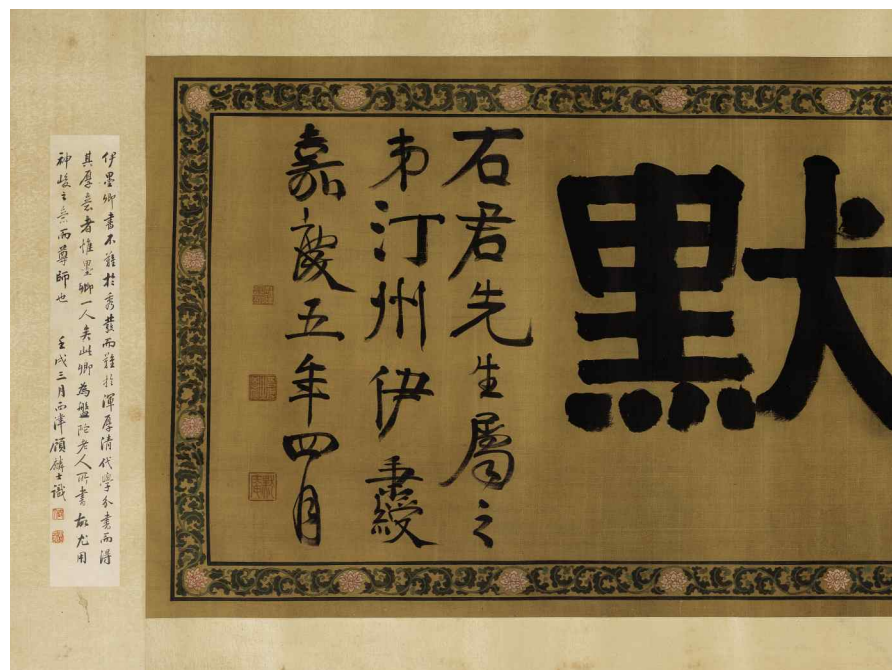 默
石君先生屬之
弟汀州伊秉綬
嘉慶五年四月
伊墨卿書不難於秀發而難於渾厚清代學分書而得
其厚意者惟墨卿一人矣此卿為盤陀老人所書故尤用
神峻之意而尊師也 壬戌三月西津顧麟士識